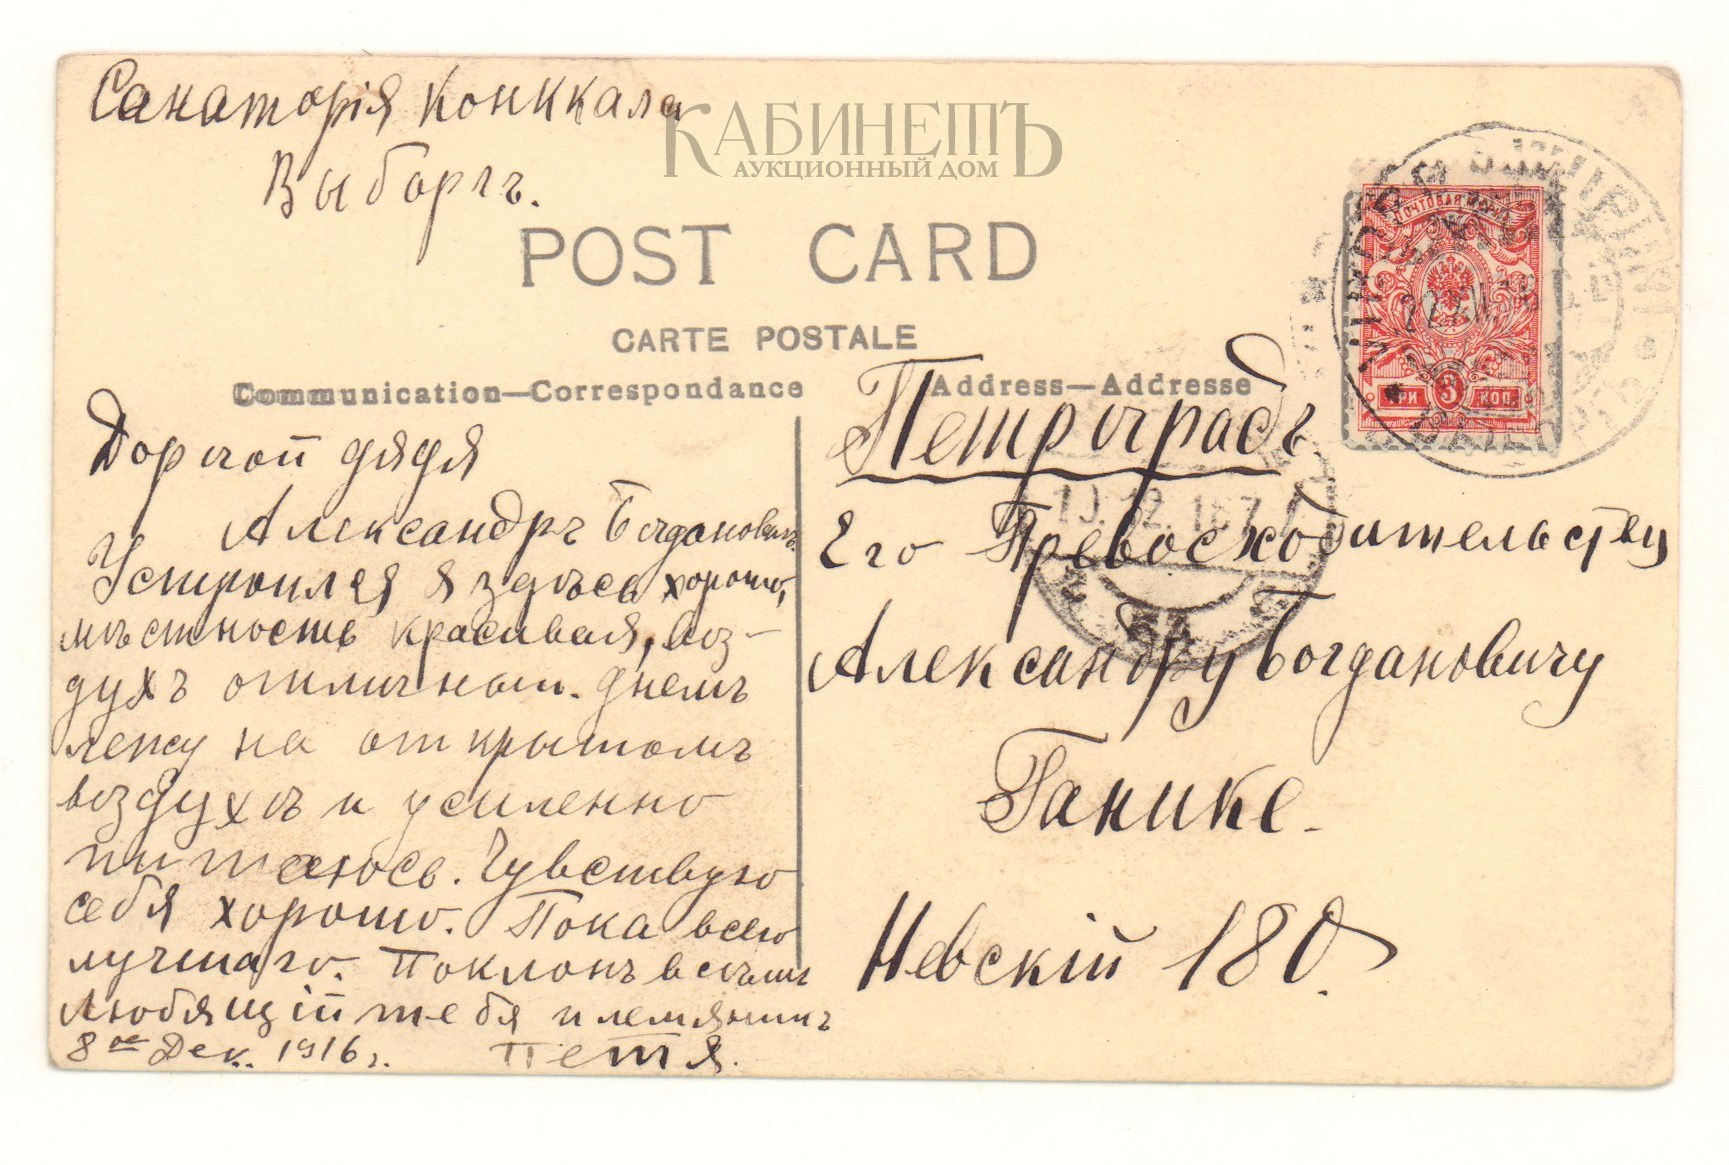 Санаторія Конккала
Выборгъ.
КАБИНЕТЪ
АУКЦИОННЫЙ ДОМ
POST CARD
CARTE POSTALE
Communication—Correspondance
Address—Addresse
Дорогой дядя
Александръ Богдановичъ
Устроился я здѣсь хорошо,
мѣстность красивая, воз-
духъ отличный. Днемъ
лежу на открытомъ
воздухѣ и усиленно
питаюсь. Чувствую
себя хорошо. Пока всего
лучшаго. Поклонъ всѣмъ
любящій тебя племянникъ
8ое Дек. 1916 г. Петя.
ПОЧТОВАЯ МАРКА
ТРИ 3 КОП.
10.12.16
Петроградъ
Его Превосходительству
Александру Богдановичу
Ганике.
Невскій 180.